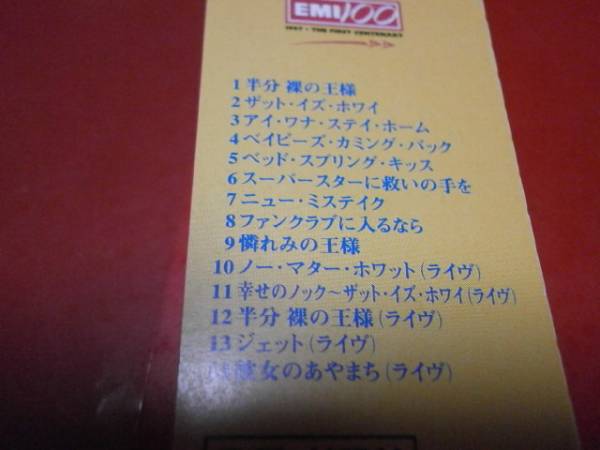 EMI100
1997 • THE FIRST CENTENARY
1 半分 裸の王様
2 ザット・イズ・ホワイ
3 アイ・ワナ・ステイ・ホーム
4 ベイビーズ・カミング・バック
5 ベッド・スプリング・キッス
6 スーパースターに救いの手を
7 ニュー・ミステイク
8 ファンクラブに入るなら
9 憐れみの王様
10 ノー・マター・ホワット(ライヴ)
11 幸せのノック〜ザット・イズ・ホワイ(ライヴ)
12 半分 裸の王様(ライヴ)
13 ジェット(ライヴ)
14 彼女のあやまち(ライヴ)